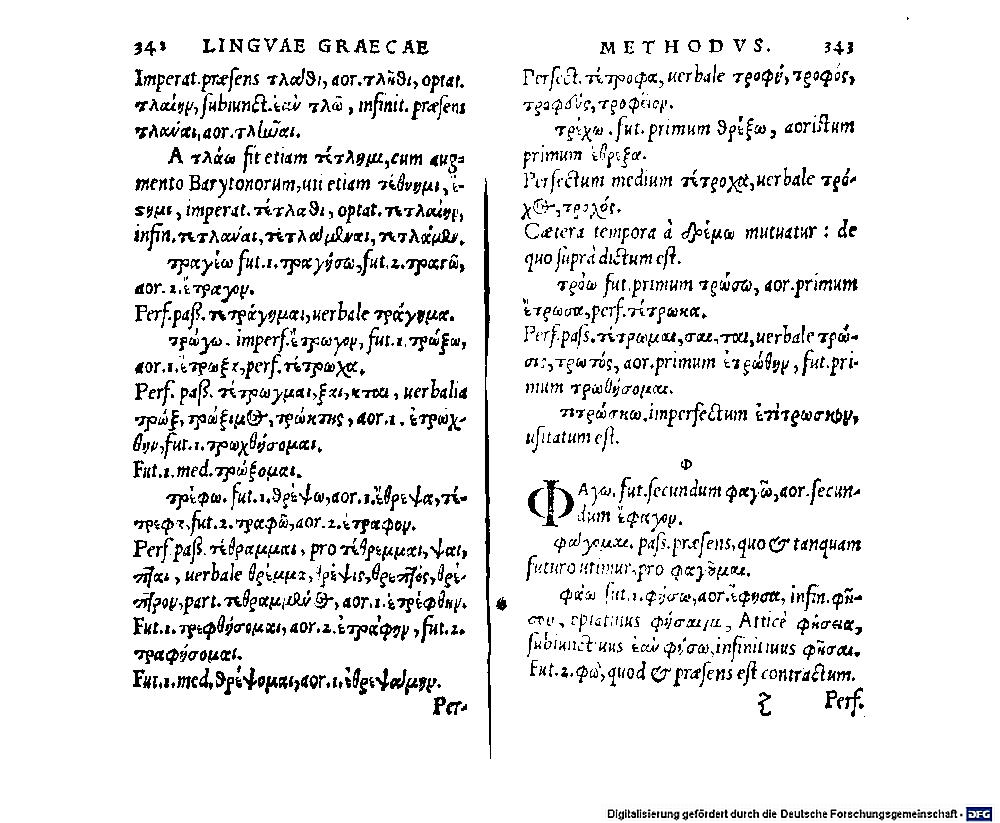 342 LINGVAE GRAECAE
Imperat.præsens τλαθι, aor.τλῆθι, optat.
τλαίην, subiunct.ἐὰν τλῶ, infinit. præsens
τλάναι, aor.τλῆναι.
A τλάω fit etiam τέτλημι, cum aug=
mento Barytonorum, uti etiam τέθνημι, ἕ-
στημι, imperat.τέτλαθι, optat.τετλαίην,
infin.τετλάναι, τετλάμεναι, τετλάμεν.
τραγέω fut.1.τραγήσω, fut.2.τραγῶ,
aor.2.ἔτραγον.
Perf.paß.τετράγημαι, uerbale τράγημα.
τρώγω. imperf.ἔτρωγον, fut.1.τρώξω,
aor.1.ἔτρωξα, perf.τέτρωχα.
Perf. paß. τέτρωγμαι, ξαι, κται, uerbalia
τρώξ, τρώξιμος, τρώκτης, aor.1. ἐτρώχ-
θην, fut.1.τρωχθήσομαι.
Fut.1.med.τρώξομαι.
τρέφω. fut.1.θρέψω, aor.1.ἔθρεψα, τέ-
τρεφα, fut.2.τραφῶ, aor.2.ἔτραφον.
Perf paß. τέθραμμαι, pro τέθρεμμαι, ψαι,
πται, uerbale θρέμμα, θρέψις, θρεπτός, θρέ-
πτρον, part. τεθραμμένος, aor.1.ἐτρέφθην.
Fut.1.τρεφθήσομαι, aor.2.ἐτράφην, fut.2.
τραφήσομαι.
Fut.1.med.θρέψομαι, aor.1.ἐθρεψάμην.
Per-
METHODVS. 343
Perfect. τέτροφα, uerbale τροφή, τροφός,
τροφεύς, τροφεῖον.
τρέχω. fut. primum θρέξω, aoristum
primum ἔθρεξα.
Perfectum medium τέτροχα, uerbale τρό-
χος, τροχός.
Cætera tempora à δρέμω mutuatur: de
quo suprà dictum est.
τρόω fut.primum τρώσω, aor.primum
ἔτρωσα, perf.τέτρωκα.
Perf.paß.τέτρωμαι, σαι, ται, uerbale τρῶ-
σις, τρωτός, aor.primum ἐτρώθην, fut.pri-
mum τρωθήσομαι.
τιτρώσκω. imperfectum ἐτίτρωσκον,
usitatum est.
Φ
ΦΑγω. fut.secundum φαγῶ, aor.secun-
dum ἔφαγον.
φάγομαι. paß.præsens, quo & tanquam
futuro utimur, pro φαγοῦμαι.
φάω fut.1.φήσω, aor.ἔφησα, infin.φῆ-
σον, optatiuus φήσαιμι, Atticè φήσεια,
subiunctiuus ἐὰν φήσω, infinitiuus φῆσαι.
Fut.2.φῶ, quod & præsens est contractum.
Perf.
Digitalisierung gefördert durch die Deutsche Forschungsgemeinschaft - DFG